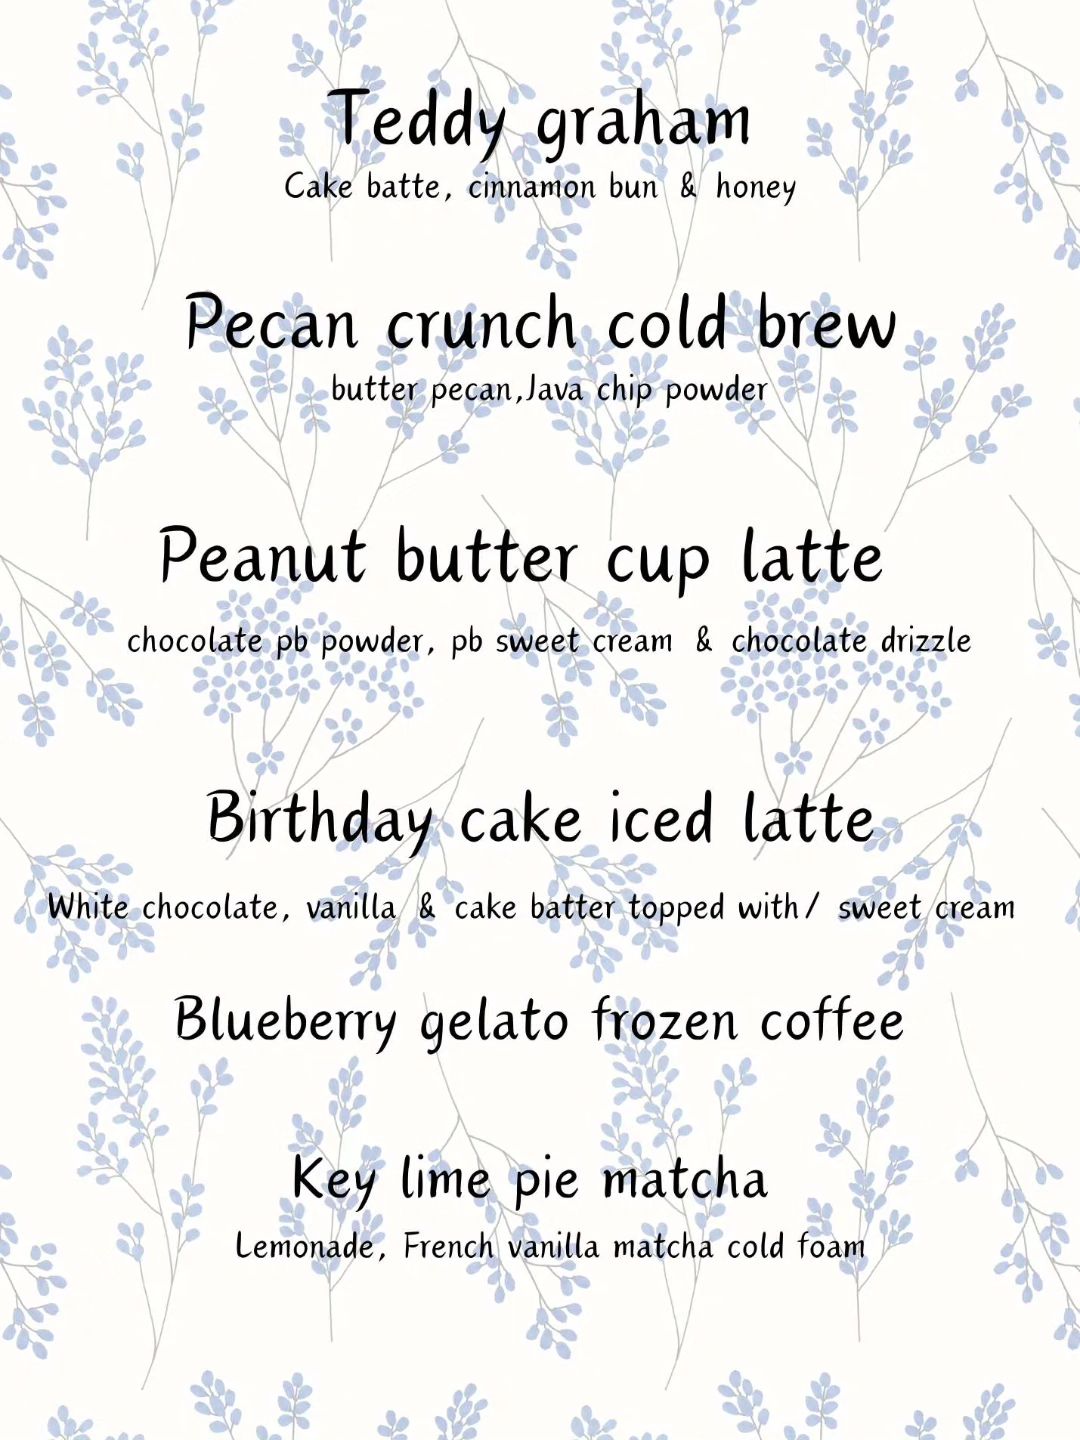 Teddy graham
Cake batte, cinnamon bun & honey
Pecan crunch cold brew
butter pecan,Java chip powder
Peanut butter cup latte
chocolate pb powder, pb sweet cream & chocolate drizzle
Birthday cake iced latte
White chocolate, vanilla & cake batter topped with/ sweet cream
Blueberry gelato frozen coffee
Key lime pie matcha
Lemonade, French vanilla matcha cold foam